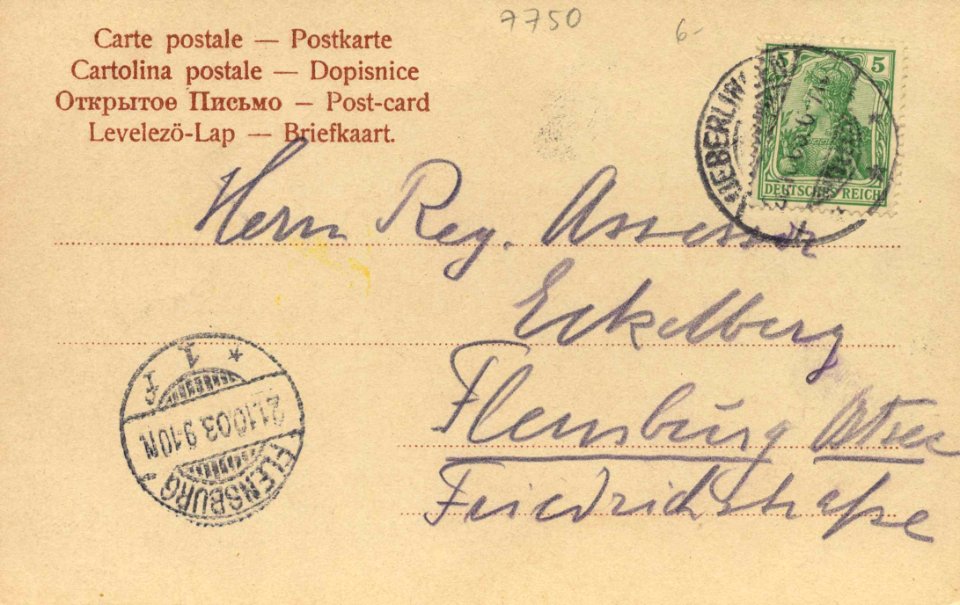 7750
6-
Carte postale — Postkarte
Cartolina postale — Dopisnice
Открытое Письмо — Post-card
Levelező-Lap — Briefkaart.
5 5
DEUTSCHES REICH
BERLIN
Herrn Reg. Assessor
Eckelberg
Flensburg Ostsee
Friedrichstraße
* 1 f
21.10.03.9-10N
FLENSBURG